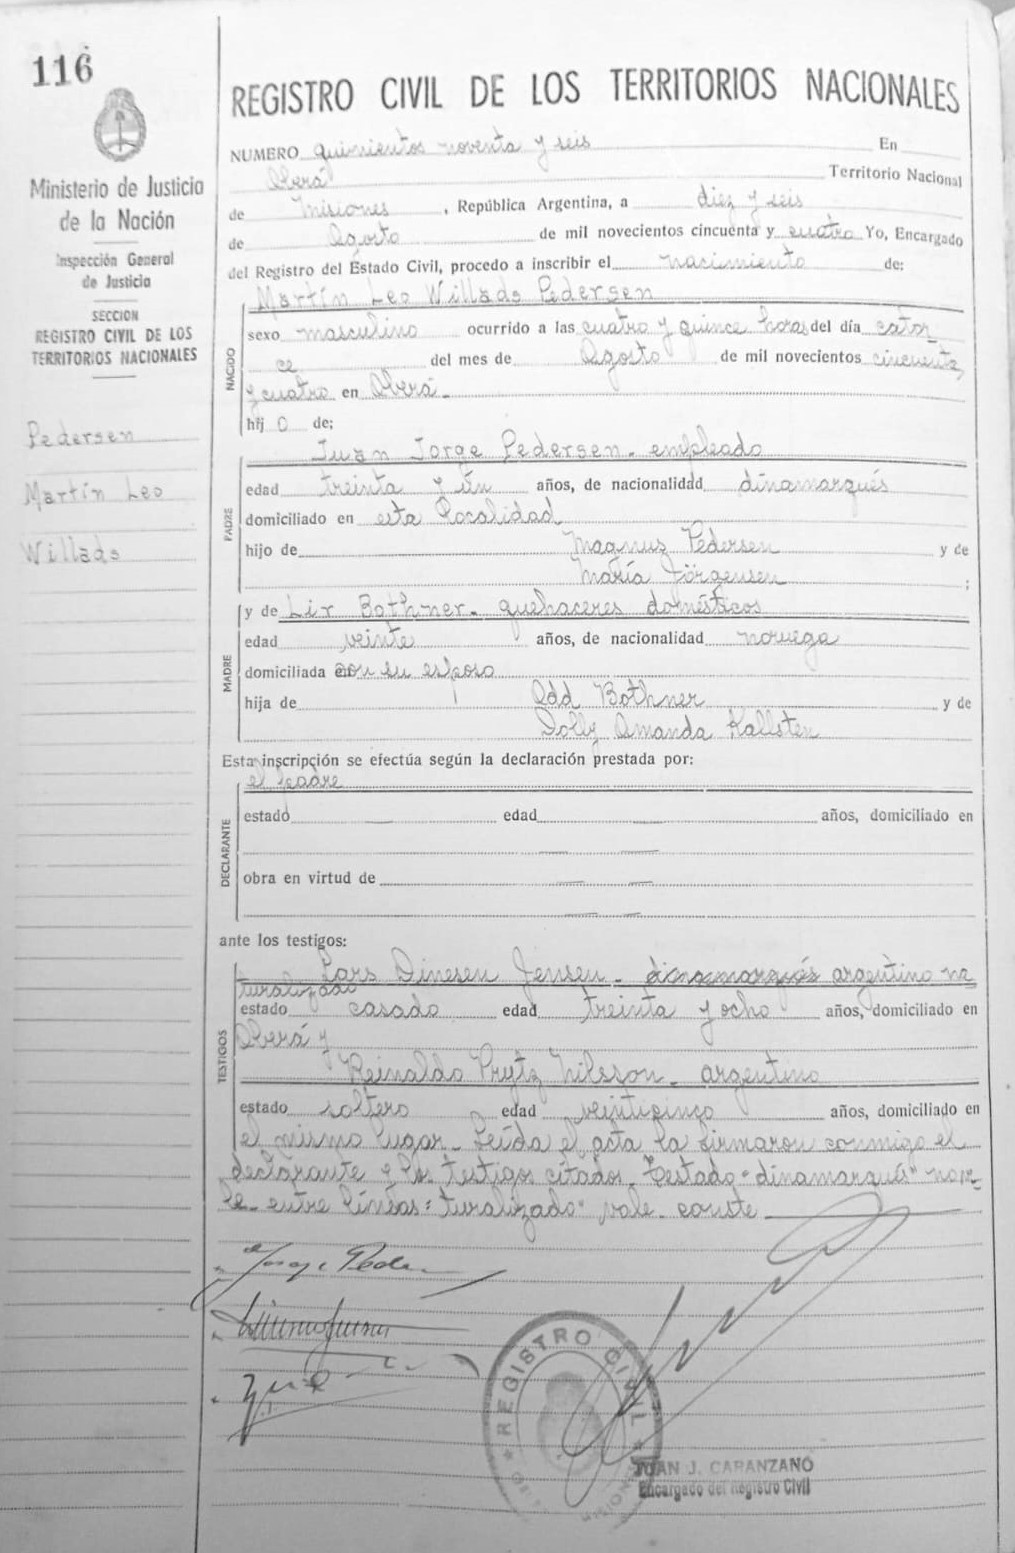 116
Ministerio de Justicia
de la Nación
Inspección General
de Justicia
SECCION
REGISTRO CIVIL DE LOS
TERRITORIOS NACIONALES
Pedersen
Martín Leo
Willads
REGISTRO CIVIL DE LOS TERRITORIOS NACIONALES
NUMERO quinientos noventa y seis En
Oberá Territorio Nacional
de Misiones , República Argentina, a diez y seis
de Agosto de mil novecientos cincuenta y cuatro Yo, Encargado
del Registro del Estado Civil, procedo a inscribir el nacimiento de:
Martín Leo Willads Pedersen
NACIDO
sexo masculino ocurrido a las cuatro y quince horas del día cator
ce del mes de Agosto de mil novecientos cincuenta
y cuatro en Oberá.
hij o de;
Juan Jorge Pedersen - empleado
PADRE
edad treinta y un años, de nacionalidad dinamarqués
domiciliado en esta localidad
hijo de Magnus Pedersen y de
María Jörgensen ;
MADRE
y de Lir Bothner - quehaceres domésticos
edad veinte años, de nacionalidad noruega
domiciliada con su esposo
hija de Odd Bothner y de
Dolly Amanda Kallsten
Esta inscripción se efectúa según la declaración prestada por:
el padre
DECLARANTE
estado — edad años, domiciliado en
— —
obra en virtud de — —
— —
ante los testigos:
TESTIGOS
Lars Dinesen Jensen - dinamarqués argentino na
turalizado
estado casado edad treinta y ocho años, domiciliado en
Oberá y
Reinaldo Prytz Nilsson - argentino
estado soltero edad veinticinco años, domiciliado en
el mismo lugar. Leída el acta la firmaron conmigo el
declarante y los testigos citados. Testado "dinamarqués" no va-
le - entre líneas: "turalizado" vale - conste
REGISTRO CIVIL
JUAN J. CAPANZANO
Encargado del Registro Civil